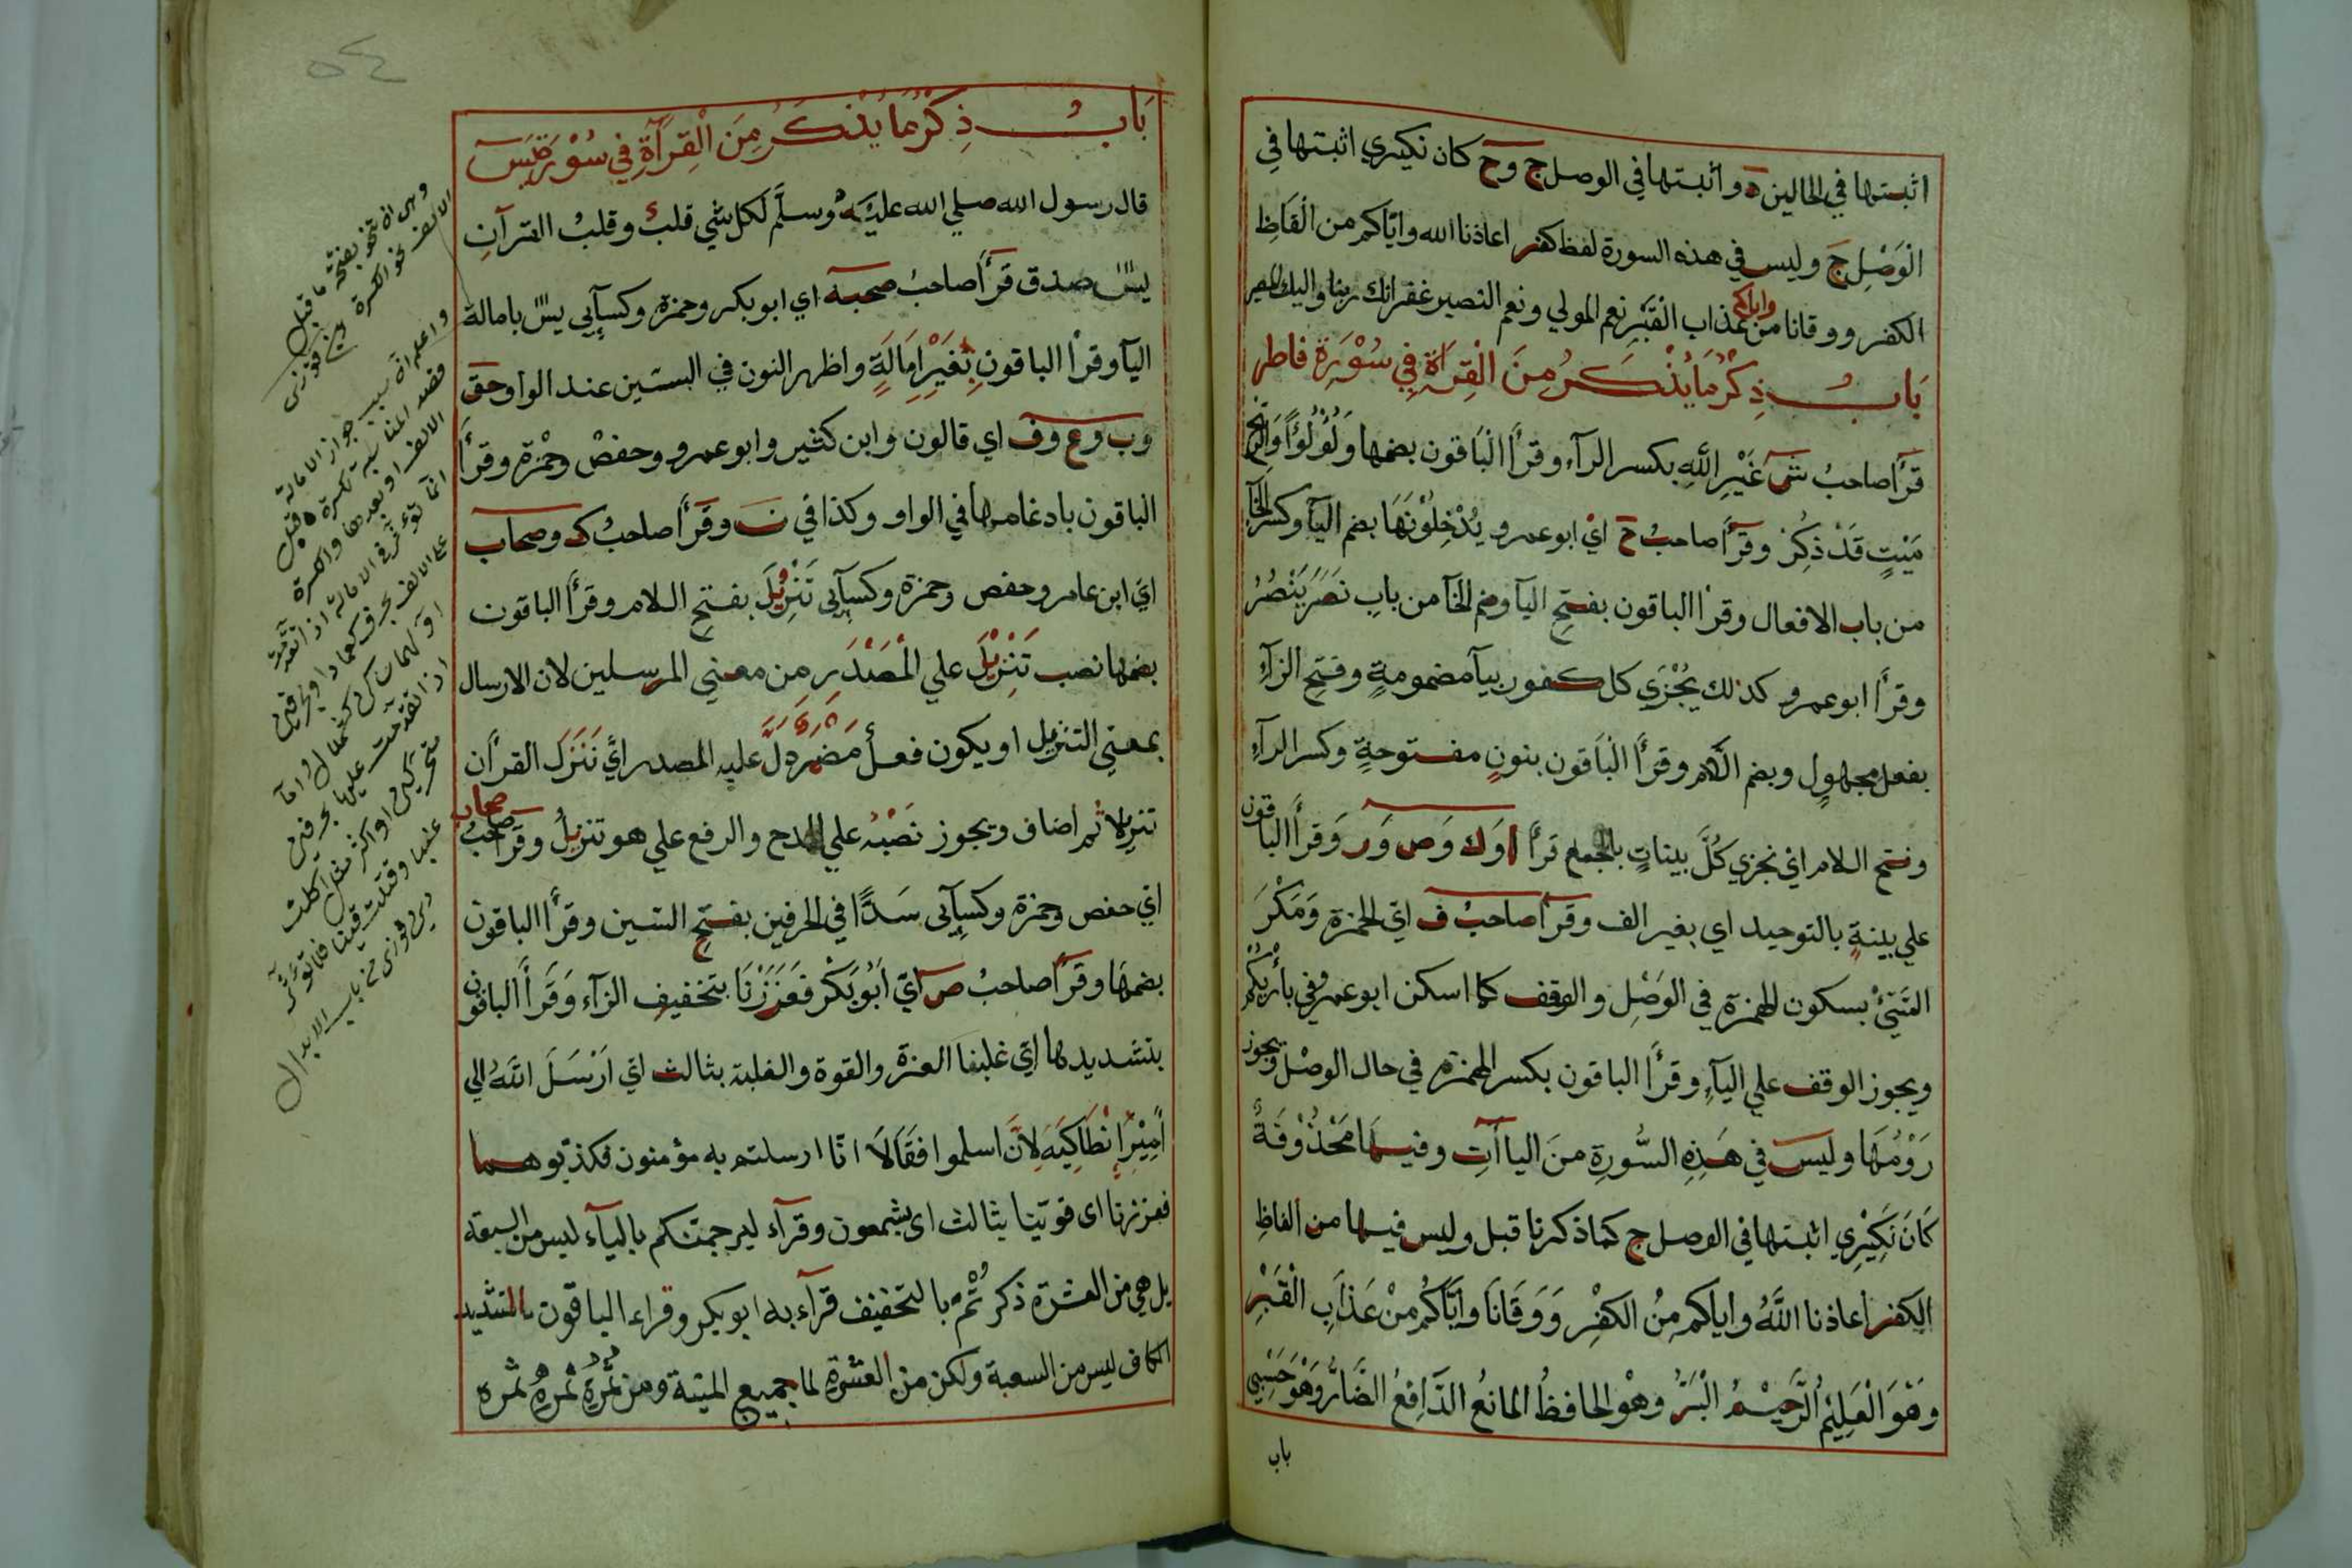 اثبتها في الحالين ه واثبتها في الوصل ج وح كان نكيري اثبتها في
الْوَصْلِ ج وليس في هذه السورة لفظ كفر اعاذنا الله واياكم من الْفَاظِ
الكفر ووقانا واياكم من عذاب الْقَبْرِ نعم المولي ونعم النصير غفرانك ربنا واليك المصير
بَابُ ذِكْرُ مَا يُذْكَرُ مِنَ الْقِرَآةِ فِي سُوْرَةِ فاطر
قَرَأَ صاحبُ ش غَيْرِ اللهِ بكسر الرآء وقرأ الْبَاقون بضمها وَلُؤْلُؤًا وَالرِّيْحَ
مَيْتٍ قَدْ ذُكِرَ وقَرَأَ صاحبُ ح ايْ ابو عمرو يُدْخَلُوْنَهَا بضم اليآ وكسر الخآ
من باب الافعال وقرأ الباقون بفتحِ اليآ وضم الخآ من بابِ نَصَرَ يَنْصُرُ
وقرأ ابو عمرو كذلك يُجْزَي كل كفور بيآ مضمومةٍ وفتحِ الزآءِ
بفعل مجهولٍ وبضم اللام وقرأَ الْبَاقون بنونٍ مفتوحةٍ وكسر الزآءِ
وفتح اللام اي نجزي كُلَّ بيناتٍ بالجمع قرأَ ا وَك وَص وَر وَقرأَ الباقون
علي بينةٍ بالتوحيد اي بغير الف وقرأ صاحبُ ف اي الحمزة وَمَكْرَ
السَّيِّئْ بسكون الهمزة في الوَصْلِ والوقف كما اسكن ابو عمرو في بَارِئْكُمْ
ويجوز الوقف علي اليآءِ وقرأَ الباقون بكسر الهمزة في حال الوصْل ويجوز
رَوْمُهَا وليسَ في هَذِهِ السُّورةِ منَ الياآتِ وفيها مَحْذُوْفَةٌ
كَانَ نَكِيْرِي اثبتها في الوصل ج كما ذكرنا قبل وليس فيها من الفاظِ
الكفر اعاذنا اللَّهُ واياكم مِنُ الكفْرِ وَوَقَانَا وايَّاكُمْ مِنْ عَذَابِ الْقَبْرِ
وهَوَ الْعَلِيْمُ الرَّحِيْمُ الْبَرُّ وهْوَ الحافظُ المانعُ الدَّافِعُ الضَّارُّ وَهْوَ حَسْبِي
باب
بَابُ ذِكْرُ مَا يُذْكَرُ مِنَ الْقِرَآةِ فِي سُوْرَةِ يَس
قال رسول الله صلي الله عليْهِ وسلَّم لكل شي قلبٌ وقلبُ القرآنِ
يسٓ صدق قَرَأَ صاحبُ صحبه اي ابو بكر وحمزة وكسآيي يسٓ بامالة
اليآ وقرأ الباقونِ بِغَيْرِ اِمَالَةٍ واظهر النون في البستين عند الواو حق
وب وع وف اي قالون وابن كثير وابو عمرو وحفصْ وحْمزة وقرأَ
الباقون بادغامها في الواو وكذا في نٓ وقَرَأَ صاحبُ ك وصحاب
اي ابن عامر وحفص وحمزة وكسآيى تَنْزِيْلَ بفتحِ اللام وقرأَ الباقون
بضمها نصب تَنْزِيْلَ علي الْمَصْدَرِ من معني المرسلين لان الارسال
بمعني التنزيل او يكون فعلٌ مَضْمَرٌ دَلَّ عليهِ المصدر ايْ نَنَزَّلَ القرأن
تنزيلا ثُم اضاف ويجوز نَصْبُهُ علي المدح والرفع علي هو تنزيلُ وقَرَأَ صاحبُ صحاب
اي حفص وحمزة وكسآيى سَدًّا في الحرفين بفتحِ السين وقرأَ الباقون
بضمهَا وقرَأَ صاحبُ ص ايْ اَبُوْبَكْر فَعَزَزْنَا بتخفيف الزآء وَقَرأَ الباقون
بتشديدها ايْ غلبنا العزة والقوة والغلبة بثالث اي اَرْسَلَ اللَّهُ الي
اَمِيْرِ اِنْطَاكِيَهَ لِاَنَّ اسلموا فقَالَا انّا ارسلتم به مؤمنون فكذّبوهما
فعززنا اى قوّينا بثالث اى بشمعون وقرآء ليرجمتكم باليآء ليس من السبعة
بل هي من العشرة ذكر ثُمَّ بالتخفيف قرآء به ابو بكر وقراء الباقون بالتشديد
الكاف ليس من السعبة ولكن من العشرة لما جميع الميتة ومن ثمرهِ ثمرهُ ثمره
وهى ان تنحو بفتحة ما قبل
الالف نحو الكسرة
واعلم ان سبب جواز الامالة
قصد المناسبة بكسرة قبل
الالف او بعدها والكسرة